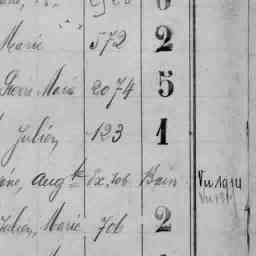 Marie 572 2
Pierre Marie 2074 5
Julien 123 1
Aug.te Ex. 706 Bain Vu 1914
Julien, Marie 706 2